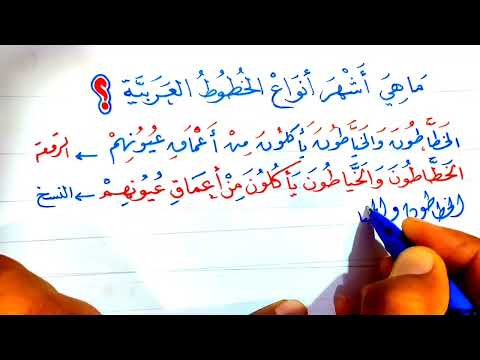 مَا هِيَ أَشْهَرَ أَنْوَاعْ الخُطُوطُ العَرَبِيَّةِ ؟
الخَطَّاطُونَ وَالخَيَّاطُونَ يَأكلُونَ مِنْ أَعْمَاقِ عُيُونِهِمْ ← الرقعة
الخَطَّاطُونَ وَالخَيَّاطُونَ يَأكُلُونَ مِنْ أعمَاقِ عُيُونِهِمْ ← النسخ
الخطاطون